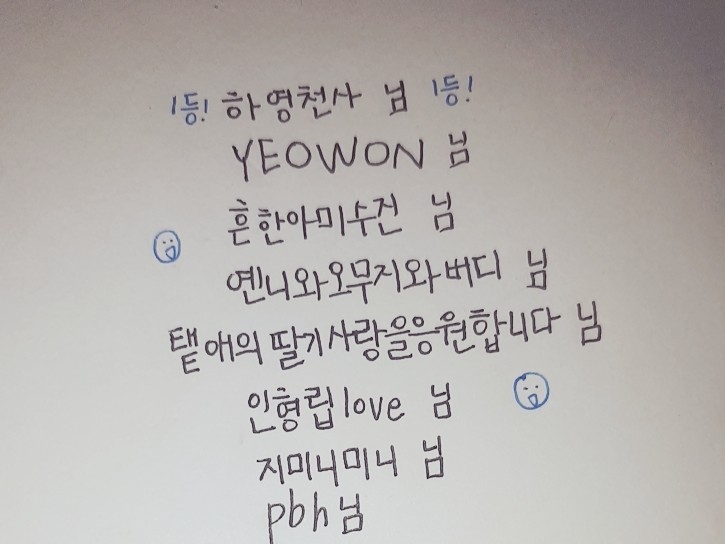 1등! 하영천사 님 1등!
YEOWON 님
흔한아미수진 님
옌니와오무지와버디 님
탵애의 딸기사랑을응원합니다 님
인형립love 님
지미니미니 님
pbh님